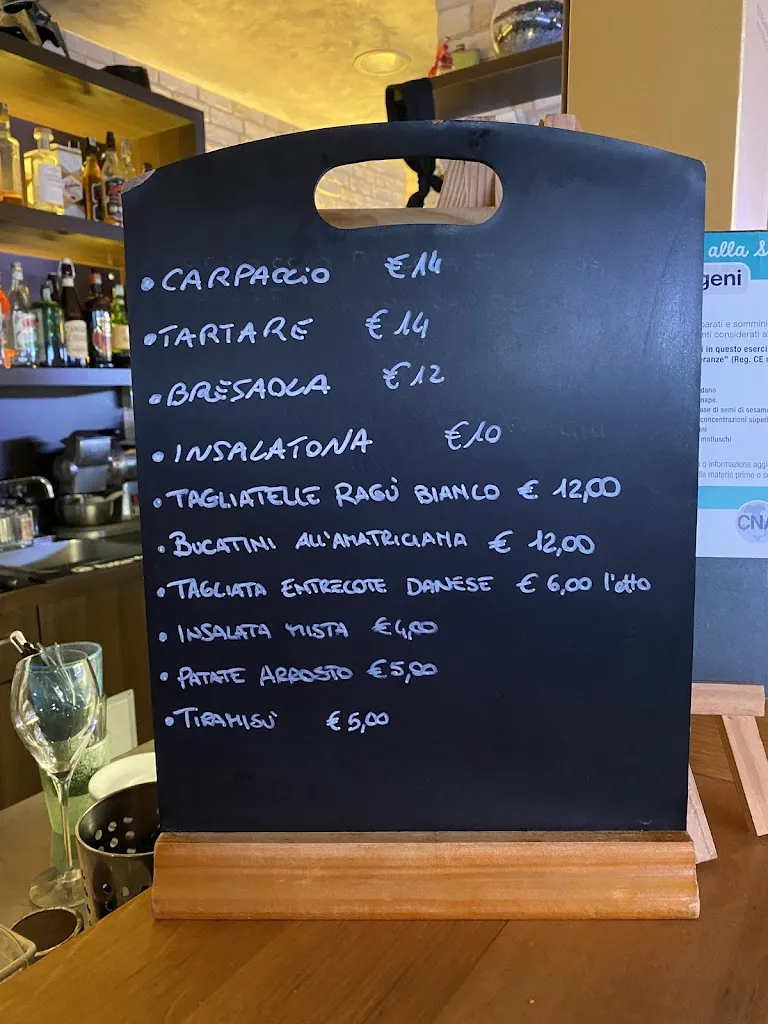 • CARPACCIO €14
• TARTARE €14
• BRESAOLA €12
• INSALATONA €10
• TAGLIATELLE RAGÙ BIANCO € 12,00
• BUCATINI ALL'AMATRICIANA € 12,00
• TAGLIATA ENTRECOTE DANESE € 6,00 l'etto
• INSALATA MISTA €4,00
• PATATE ARROSTO €5,00
• TIRAMISÙ €5,00
alla
geni
parati e sommini
nti considerati a
i in questo eserci
eranze" (Reg. CE
dano
nape.
ase di semi di sesamo
concentrazioni superi
ini
molluschi)
o informazione aggi
lle materie prime o s
CNA